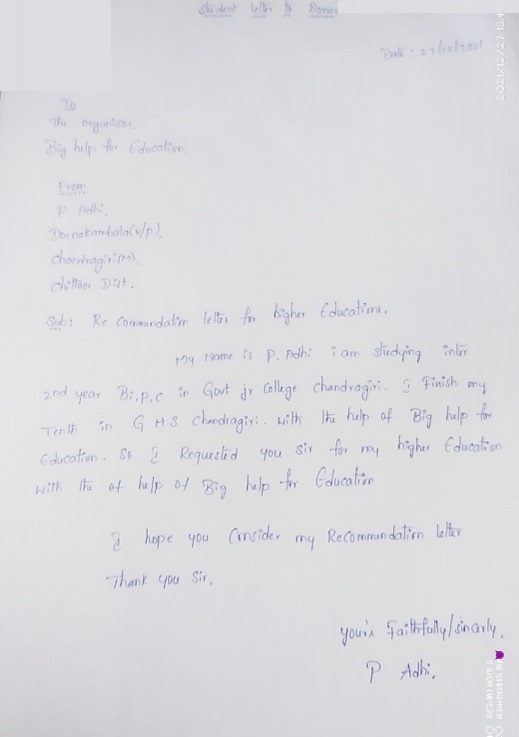 Student letter to Donor
Date: 27/12/2021
2021/12/27 13:4
To
The organisor,
Big help for Education.
From
P Adhi,
Dornakambala(v/p),
Chandragiri(M),
Chittoor Dist.
Sub: Re Commundation letter for higher Educations.
My Name is P. Adhi i am studying inter
2nd year Bi.p.c in Govt jr College Chandragiri. I Finish my
Tenth in G H S Chandragiri. with the help of Big help for
Education. So I Requested you Sir for my higher Education
with the of help of Big help for Education
I hope you Consider my Recommundation letter
Thank you Sir,
your's Faithfully/sincerly,
P Adhi.
REDMI NOTE